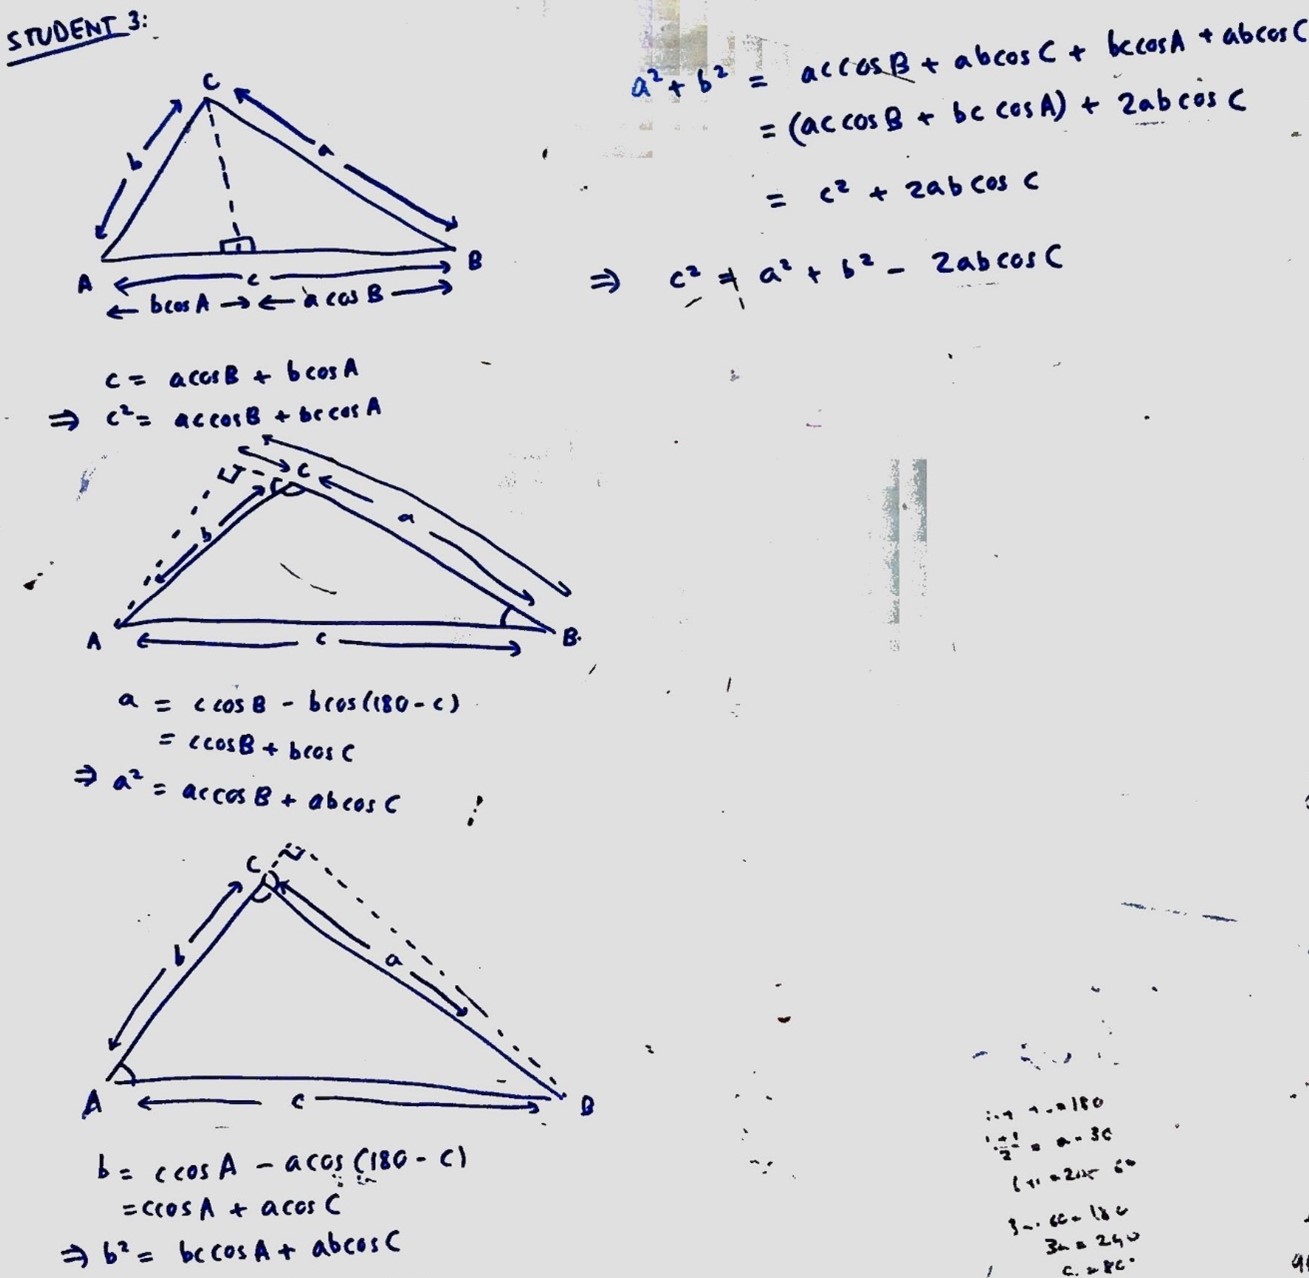 STUDENT 3:
C
b
a
A
c
B
bcosA
acosB
c = acosB + bcosA
⇒ c² = accosB + bccosA
C
b
a
A
c
B
a = ccosB - bcos(180-c)
= ccosB + bcosC
⇒ a² = accosB + abcosC
C
b
a
A
c
B
b = ccosA - acos(180-c)
= ccosA + acosC
⇒ b² = bccosA + abcosC
a² + b² = accosB + abcosC + bccosA + abcosC
= (accosB + bccosA) + 2abcosC
= c² + 2abcosC
⇒ c² = a² + b² - 2abcosC